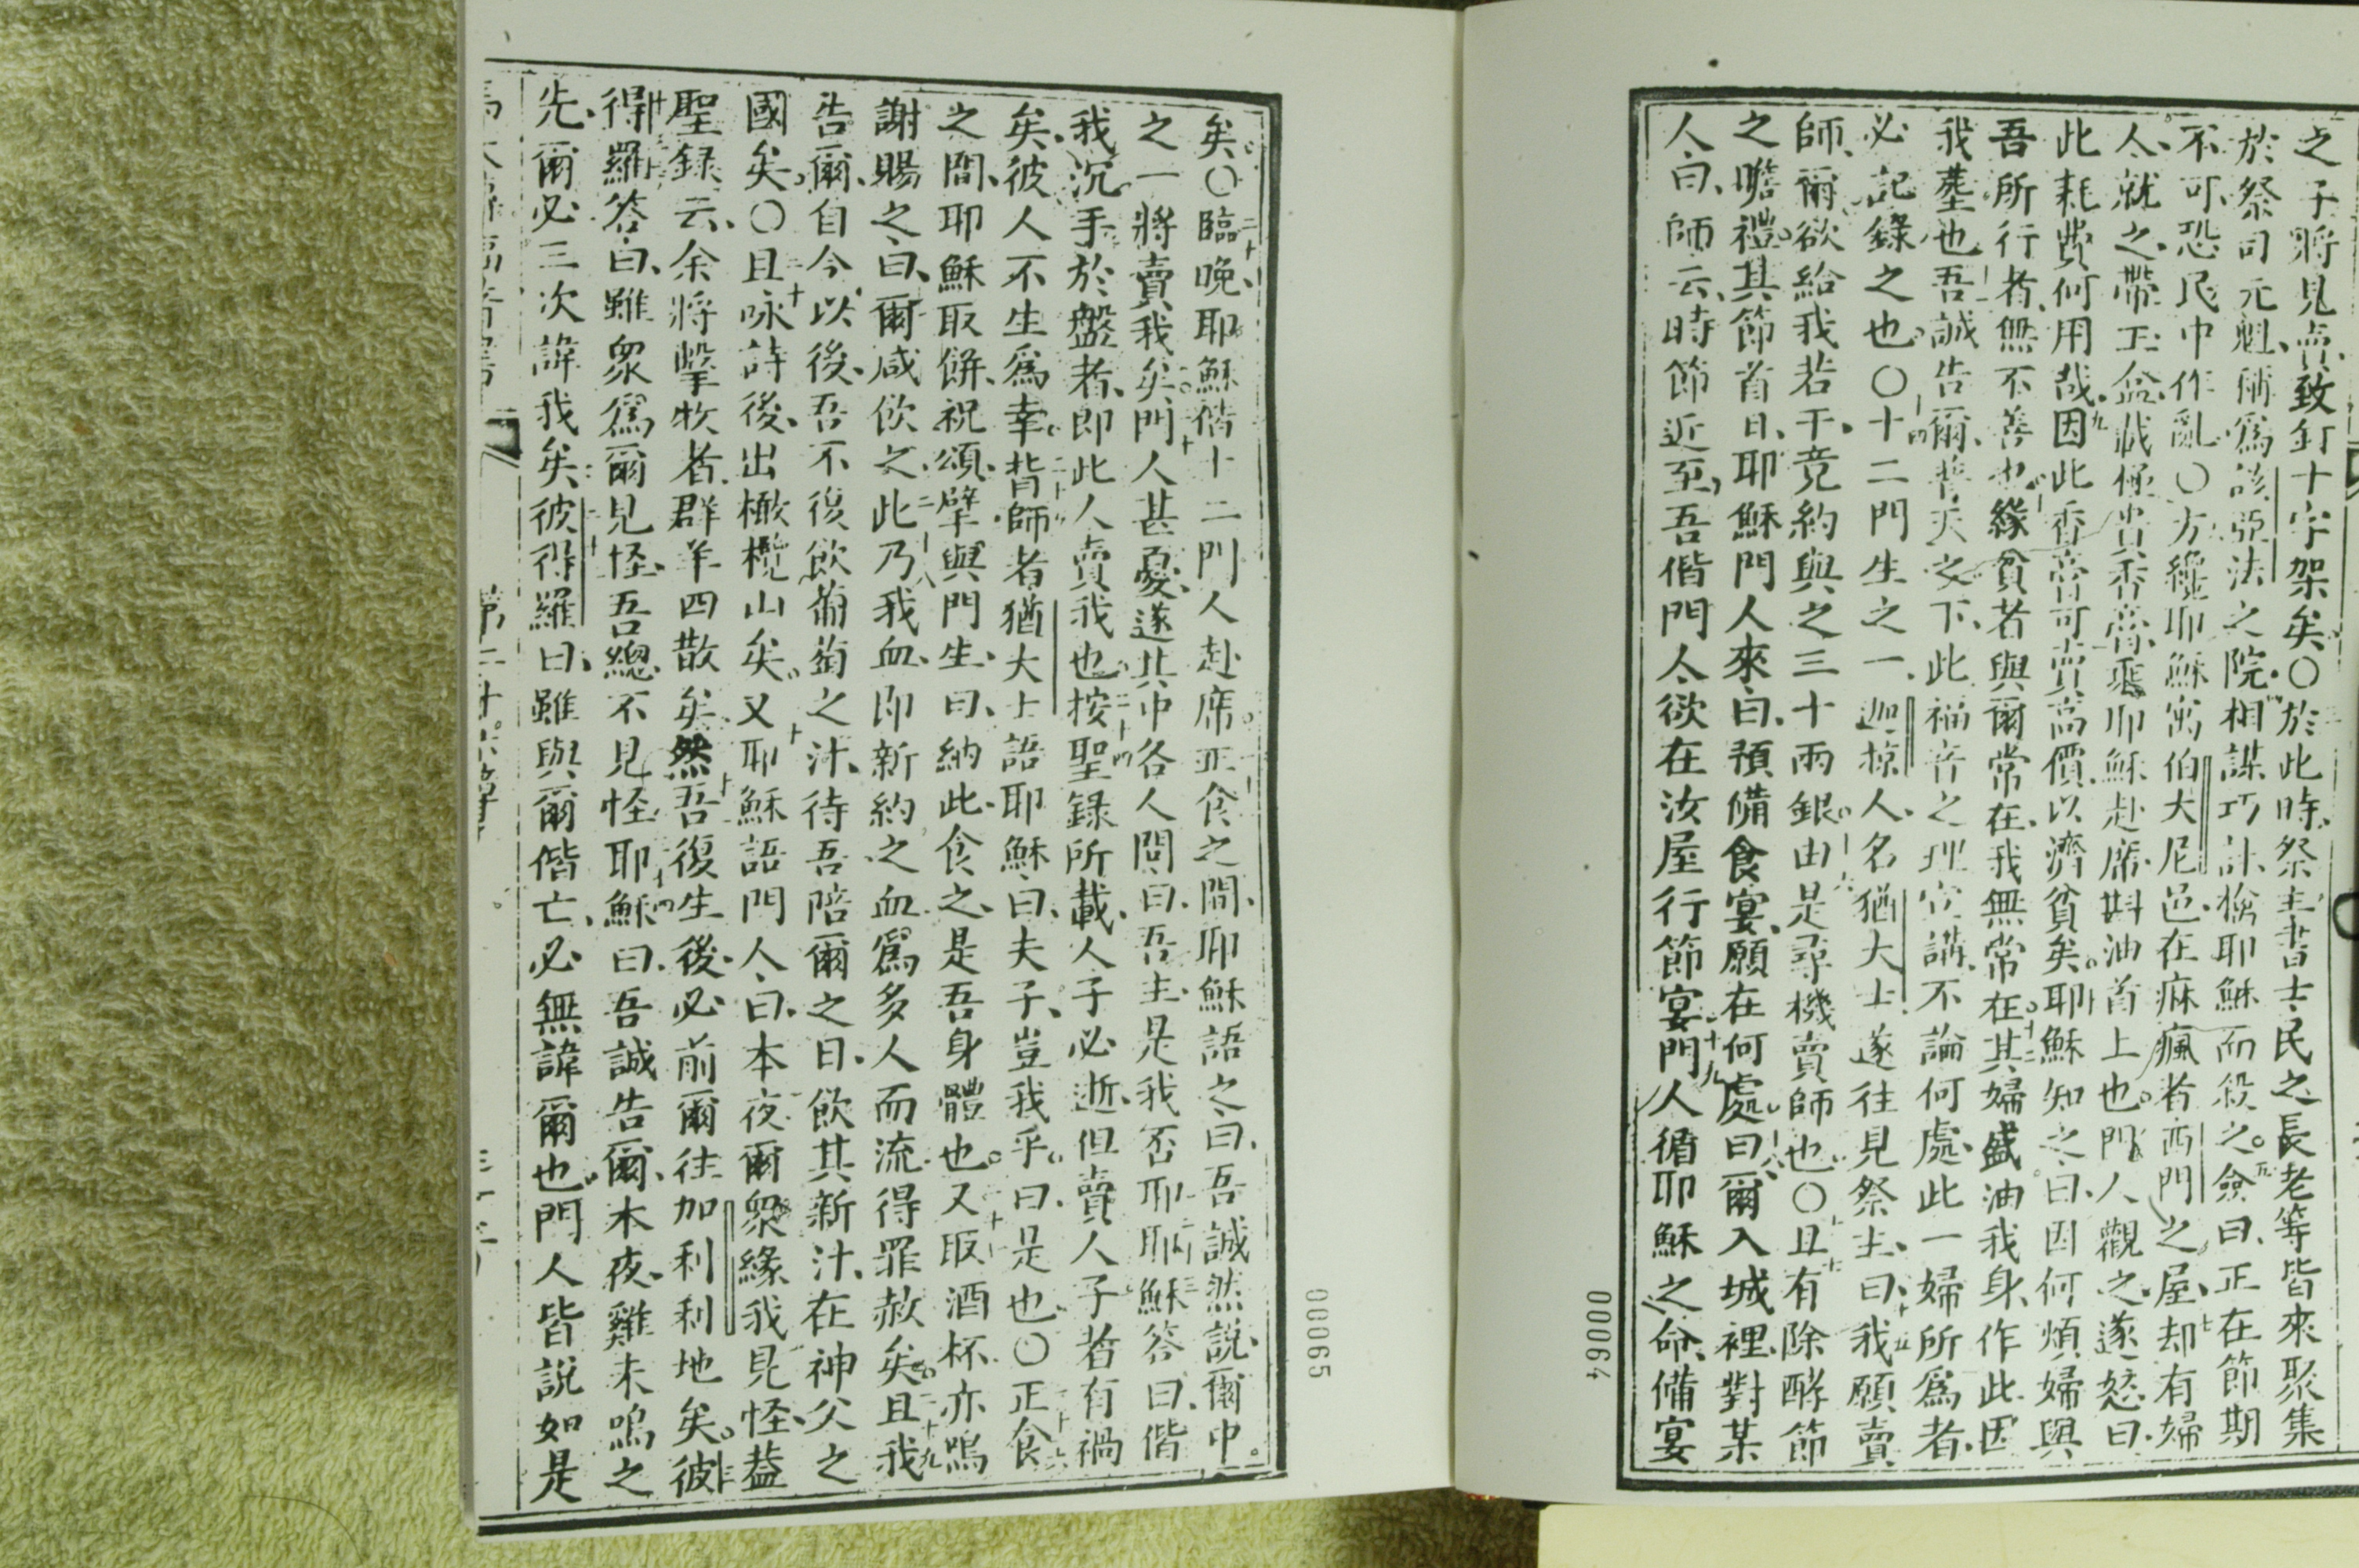 之子將見賣、致釘十字架矣。○於此時、祭主書士民之長老等皆來聚集
於祭司元魁、稱爲該亞法之院、相謀巧計、擒耶穌而殺之。僉曰、正在節期
不可、恐民中作亂。○方纔耶穌寓伯大尼邑、在痳瘋者西門之屋、却有婦
人、就之、帶玉盒、載極貴香膏、乘耶穌赴席、斟油首上也。門人觀之、遂怒曰、
此耗費何用哉。因此香膏可賣高價、以濟貧矣。耶穌知之、曰、因何煩婦與
吾所行者、無不善也。緣貧者與爾常在、我無常在。其婦盛油我身、作此因
我塟也、吾誠告爾、普天之下、此福音之理宣講、不論何處、此一婦所爲者、
必記錄之也。○十二門生之一、迦掠人、名猶大士、遂往見祭主、曰、我願賣
師、爾欲給我若干、竟約與之三十兩銀、由是尋機賣師也。○且有除酵節
之瞻禮。其節首日、耶穌門人來、曰、預備食宴、願在何處。曰、爾入城裡、對某
人曰、師云、時節近至、吾偕門人欲在汝屋行節宴。門人循耶穌之命、備宴
00064
矣。○臨晚、耶穌偕十二門人赴席。正食之間、耶穌語之曰、吾誠然說、爾中。
之一將賣我矣。門人甚憂、遂其中各人問曰、吾主、是我否耶。耶穌答曰、偕
我沉手於盤者、即此人賣我也。按聖錄所載、人子必逝、但賣人子者有禍
矣、彼人不生爲幸。背師者猶大士語耶穌、曰、夫子、豈我乎。曰、是也。○正食
之間、耶穌取餅、祝頌、擘與門生、曰、納此、食之、是吾身體也。又取酒杯、亦嗚
謝、賜之、曰、爾咸飲之、此乃我血、即新約之血、爲多人而流、得罪赦矣。且我
告爾、自今以後、吾不復飲葡萄之汁、待吾陪爾之日、飲其新汁、在神父之
國矣。○且咏詩後、出橄欖山矣。又耶穌語門人、曰、本夜爾衆緣我見怪、蓋
聖録云、余將擊牧者、群羊四散矣。然吾復生後、必前爾往加利利地矣。彼
得羅答、曰、雖衆爲爾見怪、吾總不見怪。耶穌曰、吾誠告爾、本夜、雞未嗚之
先、爾必三次諱我矣。彼得羅曰、雖與爾偕亡、必無諱爾也。門人皆說如是
00065